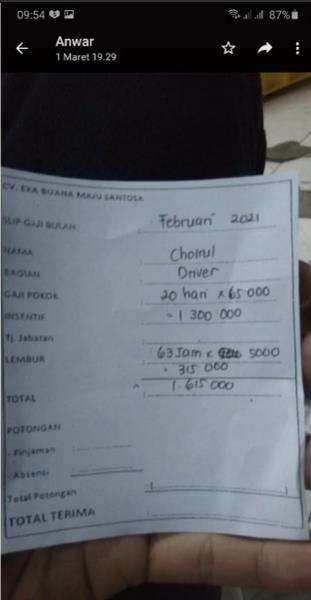 09:54 87%
Anwar
1 Maret 19.29
CV. EKA BUANA MAJU SANTOSA
SLIP GAJI BULAN : Februari 2021
NAMA : Choirul
BAGIAN : Driver
GAJI POKOK : 20 hari x 65 000
INSENTIF : = 1 300 000
Tj. Jabatan :
LEMBUR : 63 Jam x 5000
= 315 000
TOTAL : 1.615 000
POTONGAN
- Pinjaman :
- Absensi :
Total Potongan
TOTAL TERIMA :